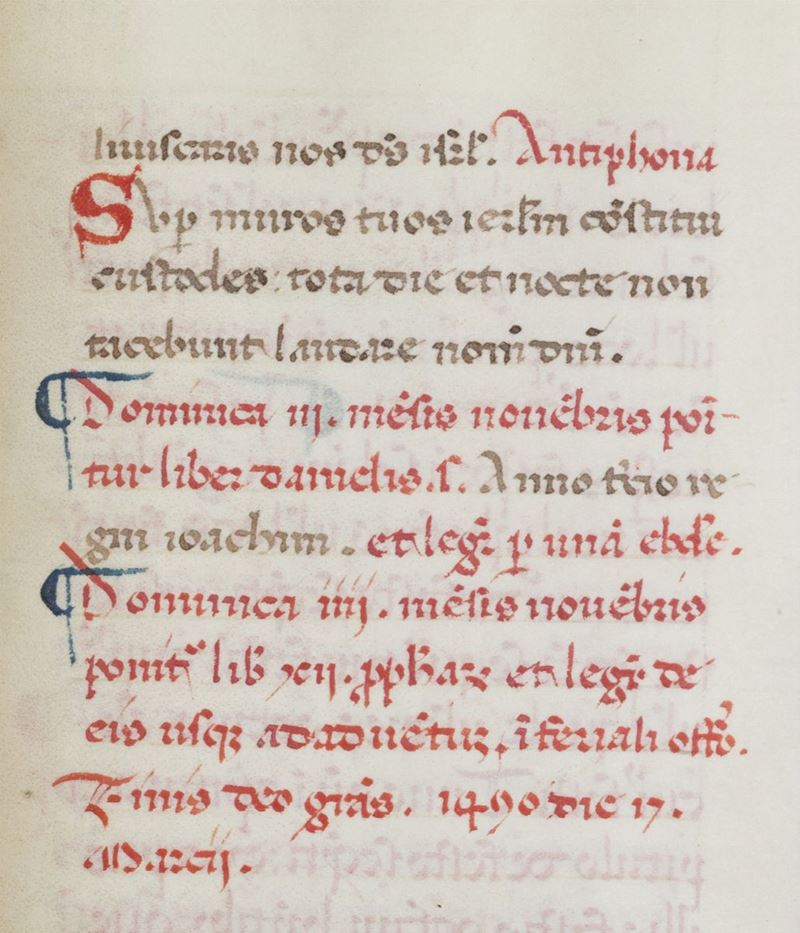 liuiscaris nos ds̄ isrl̄. Antiphona
Sup̱ muros tuos ierlm̄ cōstitui
custodes: tota die et nocte non
tacebunt laudare nom̄ dnī.
Dominica iij. mēsis nouēbris poī-
tur liber danielis .s. Anno t̄cio re-
gni ioachim. et legr̄ p̱ unā ebde.
Dominica iiij. mēsis nouēbris
ponit᷑ lib̄ xij. ꝓph̄aꝝ et legr̄ de
eis usqꝫ ad aduētuꝫ, ī feriali offō.
Finis deo grās. 1490 die 17.
Marcij.